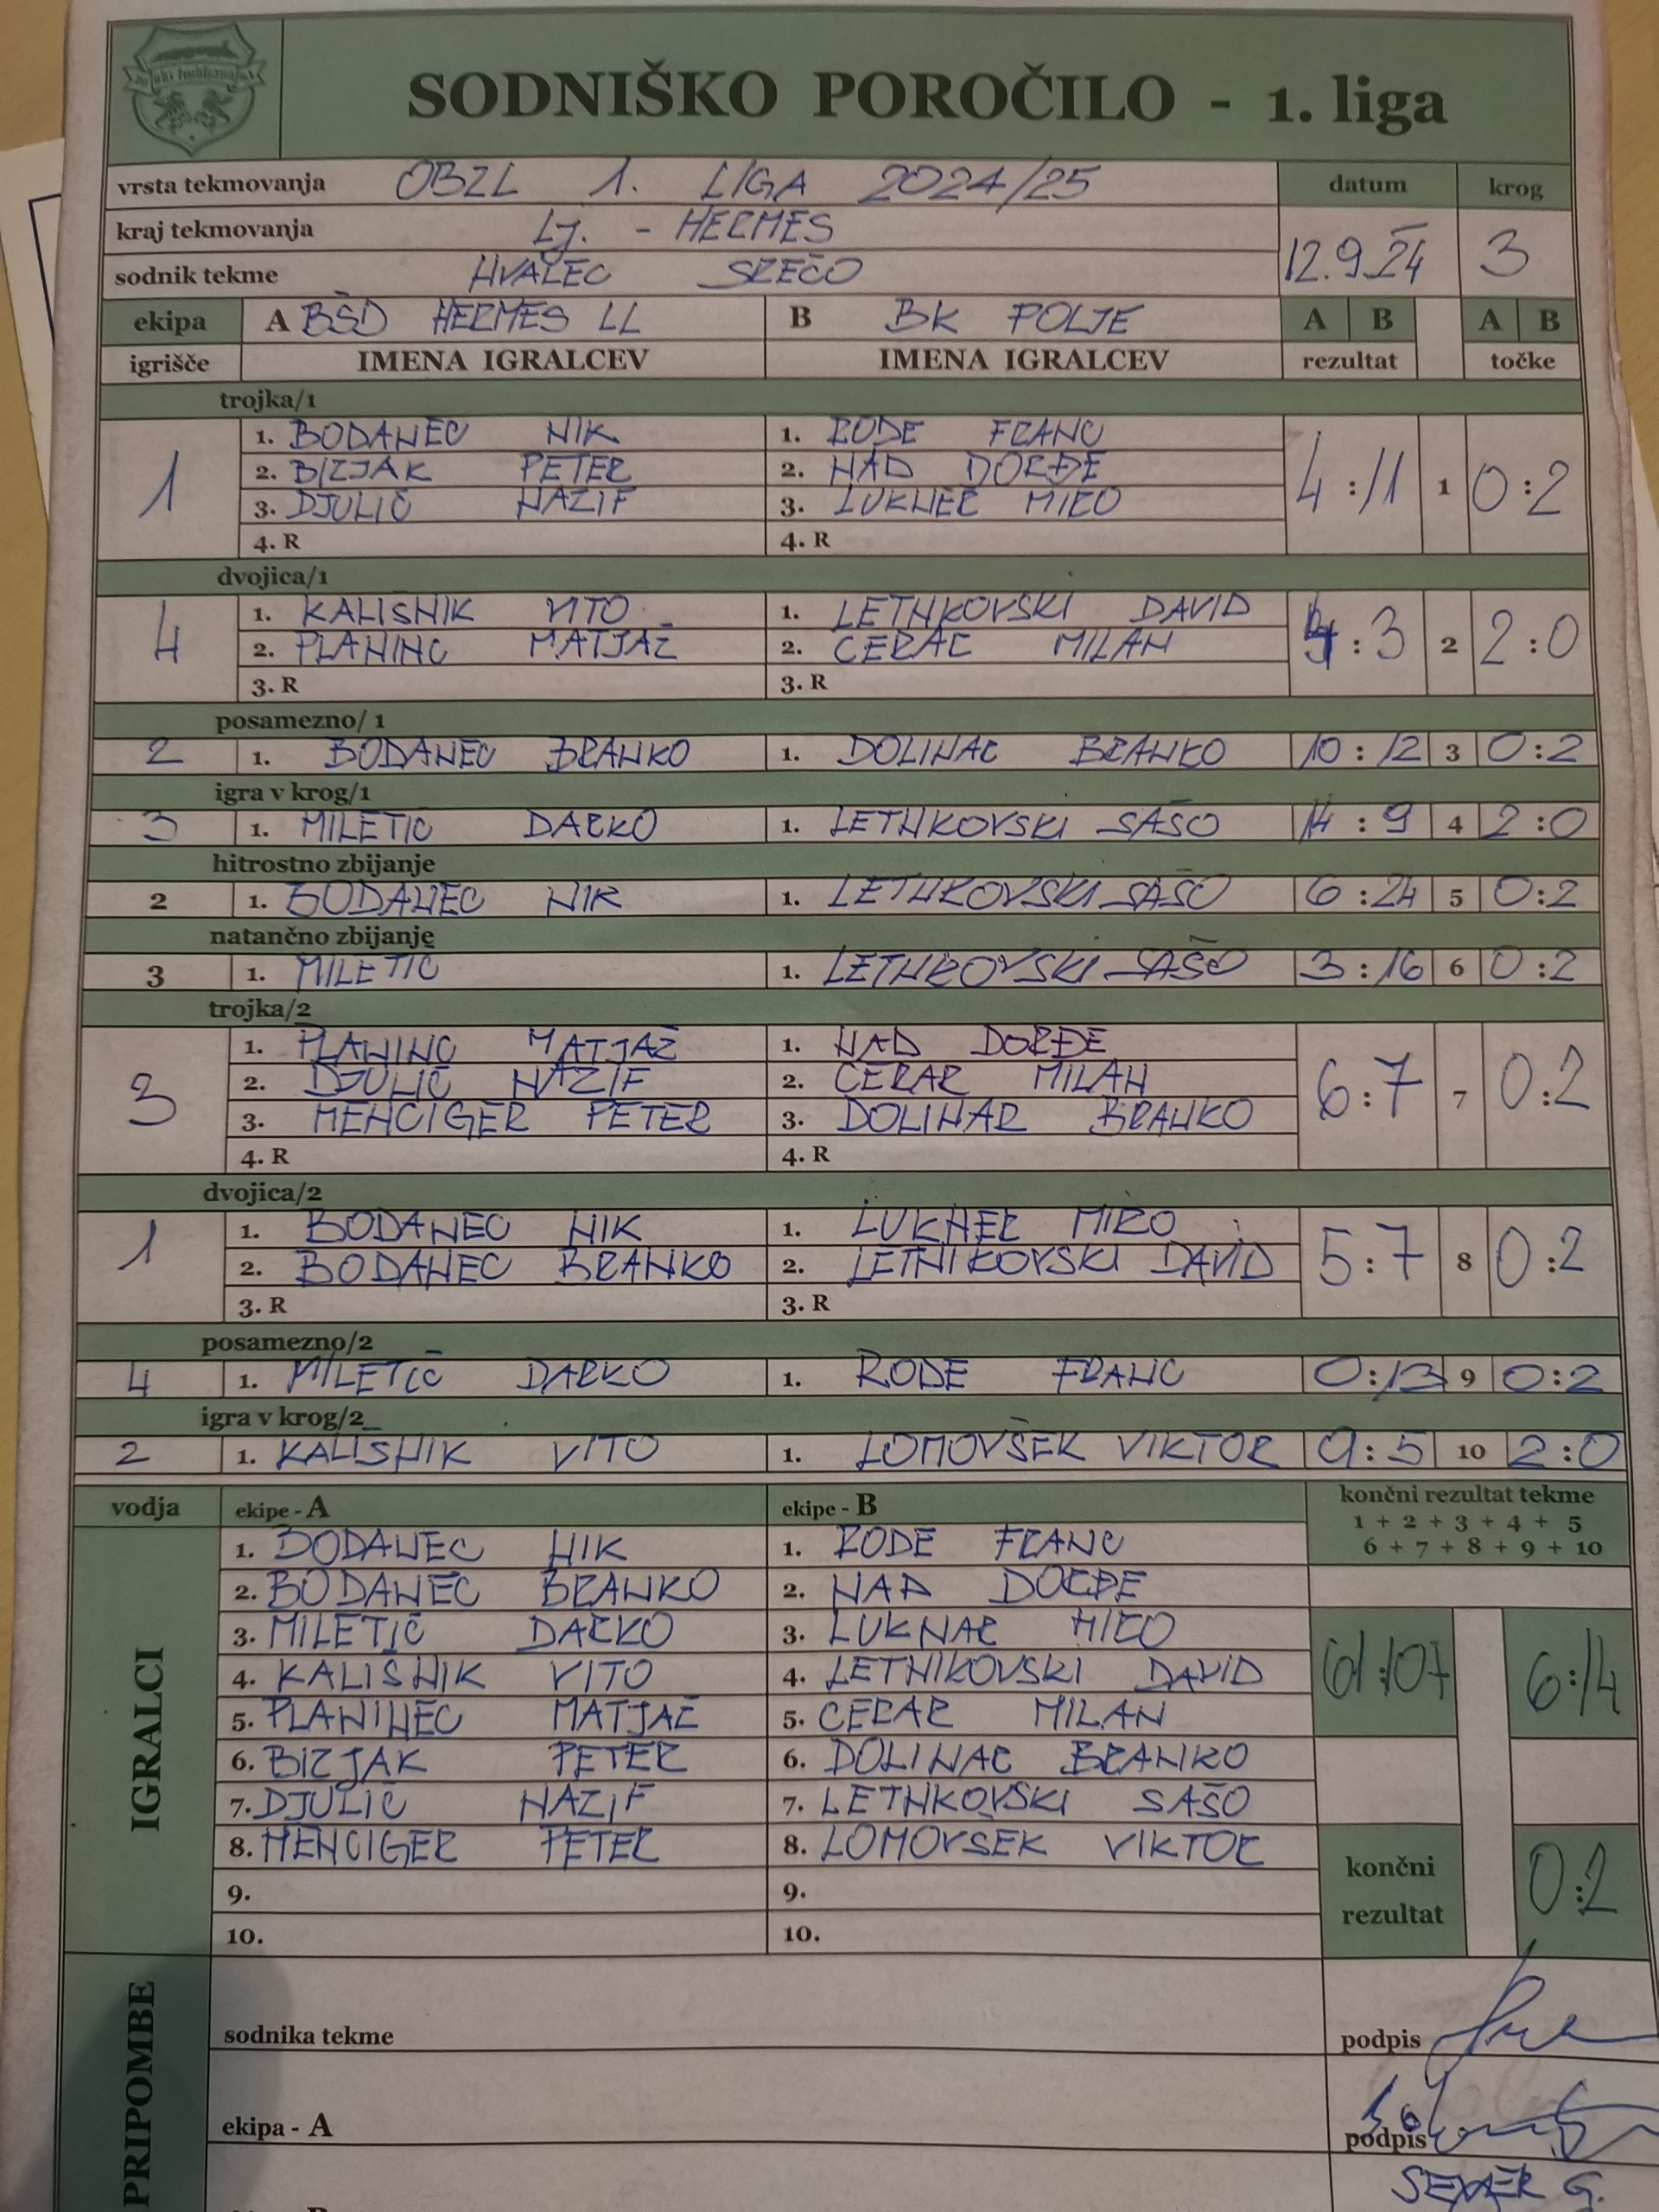 SODNIŠKO POROČILO - 1. liga
vrsta tekmovanja OBZL 1. LIGA 2024/25 datum krog
kraj tekmovanja Lj. - HERMES
sodnik tekme HVALEC SREČO 12.9.24 3
ekipa A BŠD HERMES LL B BK POLJE A B A B
igrišče IMENA IGRALCEV IMENA IGRALCEV rezultat točke
trojka/1
1. BODANEC NIK 1. RODE FRANC
1 2. BIZJAK PETER 2. NAĐ ĐORĐE 4:11 1 0:2
3. DJULIČ NAZIF 3. LUKNER MIRO
4. R 4. R
dvojica/1
4 1. KALIŠNIK VITO 1. LETNKOVSKI DAVID
2. PLANINC MATJAŽ 2. CERAR MILAN :3 2 2:0
3. R 3. R
posamezno/ 1
2 1. BODANEC BRANKO 1. DOLINAR BRANKO 10:12 3 0:2
igra v krog/1
3 1. MILETIČ DARKO 1. LETNKOVSKI SAŠO 14:9 4 2:0
hitrostno zbijanje
2 1. BODANEC NIK 1. LETNKOVSKI SAŠO 6:24 5 0:2
natančno zbijanje
3 1. MILETIČ 1. LETNKOVSKI SAŠO 3:16 6 0:2
trojka/2
1. PLANINC MATJAŽ 1. NAD DORĐE
3 2. DJULIČ NAZIF 2. CERAR MILAN 6:7 7 0:2
3. MENCIGER PETER 3. DOLINAR BRANKO
4. R 4. R
dvojica/2
1 1. BODANEC NIK 1. LUKNER MIRO
2. BODANEC BRANKO 2. LETNIKOVSKI DAVID 5:7 8 0:2
3. R 3. R
posamezno/2
4 1. MILETIČ DARKO 1. RODE FRANC 0:13 9 0:2
igra v krog/2
2 1. KALIŠNIK VITO 1. LOMOVŠEK VIKTOR 9:5 10 2:0
vodja ekipe - A ekipe - B končni rezultat tekme
1 + 2 + 3 + 4 + 5
6 + 7 + 8 + 9 + 10
IGRALCI
1. BODANEC NIK 1. RODE FRANC
2. BODANEC BRANKO 2. NAD DORĐE
3. MILETIČ DARKO 3. LUKNAR MIRO
4. KALIŠNIK VITO 4. LETNIKOVSKI DAVID 61:107 6:14
5. PLANINEC MATJAŽ 5. CERAR MILAN
6. BIZJAK PETER 6. DOLINAR BRANKO
7. DJULIČ NAZIF 7. LETNKOVSKI SAŠO
8. MENCIGER PETER 8. LOMOVŠEK VIKTOR
9. 9. končni rezultat 0:2
10. 10.
PRIPOMBE
sodnika tekme podpis
ekipa - A podpis
SEVER G.